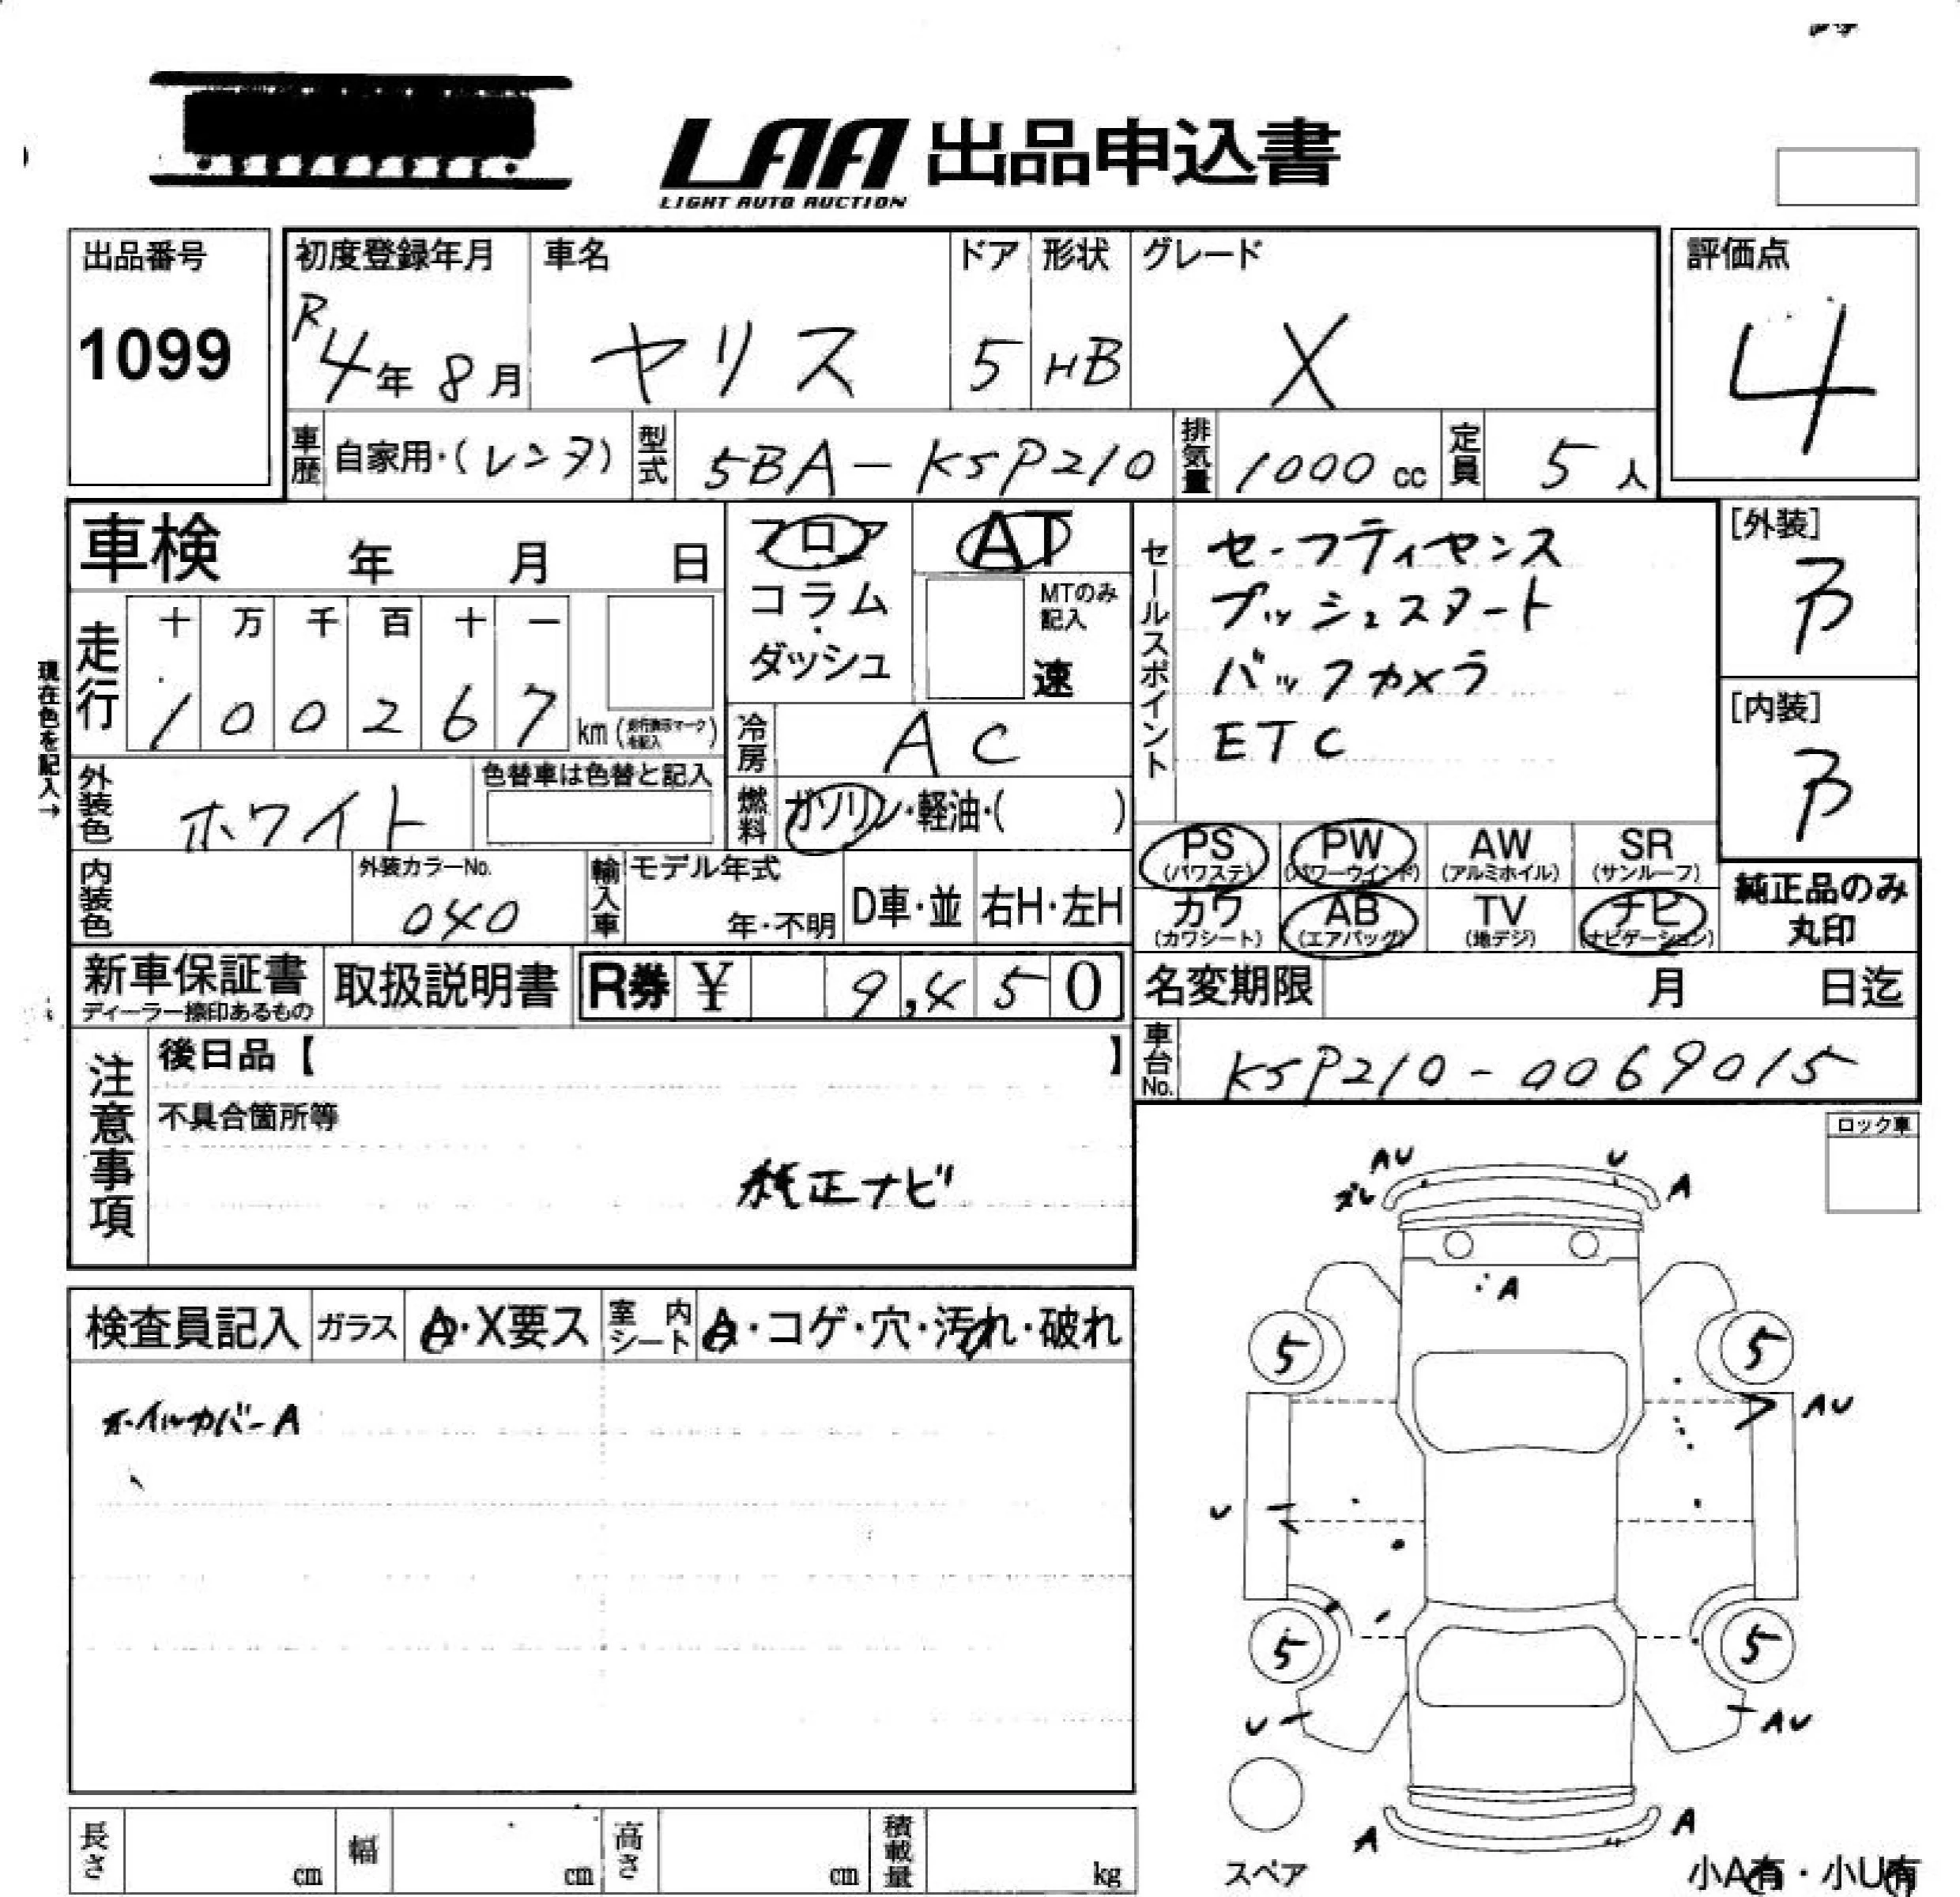 LAA 出品申込書
LIGHT AUTO AUCTION
出品番号
1099
初度登録年月
R4年8月
車名
ヤリス
ドア
5
形状
HB
グレード
X
評価点
4
車歴
自家用・(レンタ)
型式
5BA-KSP210
排気量
1000cc
定員
5人
車検 年 月 日
現在色を記入→
走行
十 万 千 百 十 一
1 0 0 2 6 7 km
フロア
コラム
・
ダッシュ
AT
MTのみ
記入
速
冷房
AC
燃料
ガソリン・軽油・( )
セールスポイント
セーフティセンス
プッシュスタート
バックカメラ
ETC
[外装]
B
[内装]
B
外装色
ホワイト
色替車は色替と記入
内装色
外装カラーNo.
040
輸入車
モデル年式
年・不明
D車・並
右H・左H
PS
(パワステ)
PW
(パワーウインド)
AW
(アルミホイル)
SR
(サンルーフ)
カワ
(カワシート)
AB
(エアバッグ)
TV
(地デジ)
ナビ
(ナビゲーション)
純正品のみ
丸印
新車保証書
ディーラー捺印あるもの
取扱説明書
R券 ¥ 9,450
名変期限 月 日迄
車台No.
KSP210-0069015
注意事項
後日品【 】
不具合箇所等
純正ナビ
ロック車
検査員記入
ガラス
A・X要ス
室内シート
A・コゲ・穴・汚れ・破れ
ホイルカバーA
AU
U
ズレ
A
A
5
5
AU
U
5
5
U
AU
A
A
スペア
小A有・小U有
長さ cm
幅 cm
高さ cm
積載量 kg